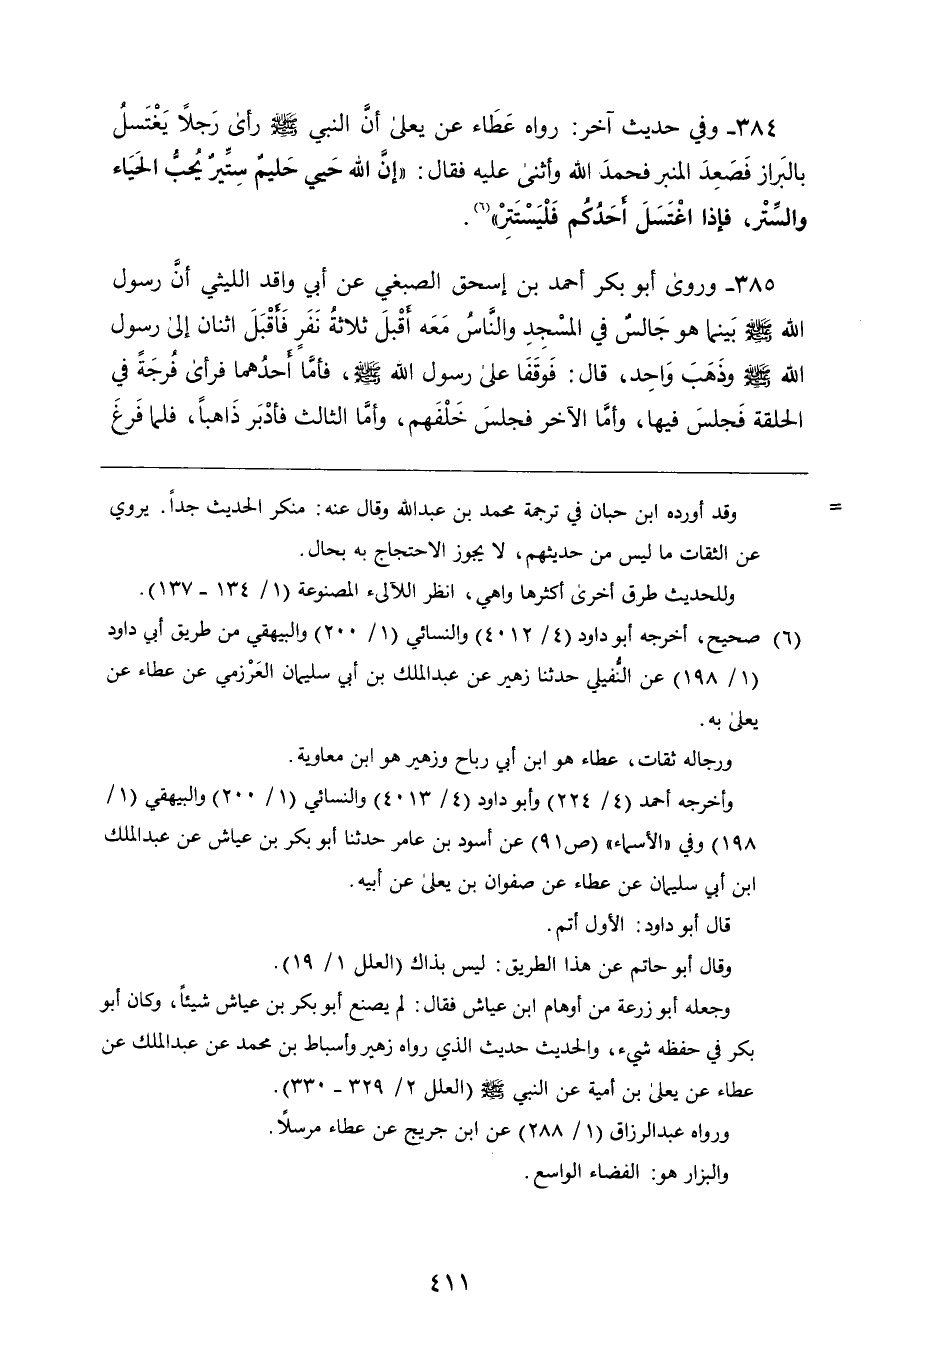 ٣٨٤ـ وفي حديث آخر: رواه عَطَاء عن يعلىٰ أنَّ النبي ﷺ رأىٰ رَجلاً يَغْتَسلُ
بالبَراز فَصَعِدَ المنبر فحمدَ الله وأثنىٰ عليه فقال: «إنَّ الله حَيي حَليمٌ سِتِّيرٌ يُحبُّ الحَيَاء
والسِّتْر، فإذا اغْتَسَلَ أَحَدُكُم فَلْيَسْتَتِرْ»(٦).
٣٨٥ـ وروىٰ أبو بكر أحمد بن إسحق الصبغي عن أبي واقد الليثي أنَّ رسول
الله ﷺ بَينما هو جَالسٌ في المسْجدِ والنَّاسُ مَعَه أَقْبلَ ثلاثةُ نَفَرٍ فَأَقْبَلَ اثنان إلىٰ رسول
الله ﷺ وذَهَبَ وَاحِد، قال: فَوقَفَا علىٰ رسول الله ﷺ، فأمَّا أَحدُهما فرأىٰ فُرجَةً في
الحلقة فَجلسَ فيها، وأمَّا الآخر فجلسَ خَلْفَهم، وأمَّا الثالث فأدْبَر ذَاهباً، فلما فَرغَ
= وقد أورده ابن حبان في ترجمة محمد بن عبدالله وقال عنه: منكر الحديث جداً. يروي
عن الثقات ما ليس من حديثهم، لا يجوز الاحتجاج به بحال.
وللحديث طرق أخرىٰ أكثرها واهي، انظر اللآلىء المصنوعة (١/ ١٣٤ ـ ١٣٧).
(٦) صحيح، أخرجه أبو داود (٤/ ٤٠١٢) والنسائي (١/ ٢٠٠) والبيهقي من طريق أبي داود
(١/ ١٩٨) عن النُّفيلي حدثنا زهير عن عبدالملك بن أبي سليمان العَرْزمي عن عطاء عن
يعلىٰ به.
ورجاله ثقات، عطاء هو ابن أبي رباح وزهير هو ابن معاوية.
وأخرجه أحمد (٤/ ٢٢٤) وأبو داود (٤/ ٤٠١٣) والنسائي (١/ ٢٠٠) والبيهقي (١/
١٩٨) وفي «الأسماء» (ص٩١) عن أسود بن عامر حدثنا أبو بكر بن عياش عن عبدالملك
ابن أبي سليمان عن عطاء عن صفوان بن يعلىٰ عن أبيه.
قال أبو داود: الأول أتم.
وقال أبو حاتم عن هذا الطريق: ليس بذاك (العلل ١/ ١٩).
وجعله أبو زرعة من أوهام ابن عياش فقال: لم يصنع أبو بكر بن عياش شيئاً، وكان أبو
بكر في حفظه شيء، والحديث حديث الذي رواه زهير وأسباط بن محمد عن عبدالملك عن
عطاء عن يعلىٰ بن أمية عن النبي ﷺ (العلل ٢/ ٣٢٩ ـ ٣٣٠).
ورواه عبدالرزاق (١/ ٢٨٨) عن ابن جريج عن عطاء مرسلاً.
والبزار هو: الفضاء الواسع.
٤١١